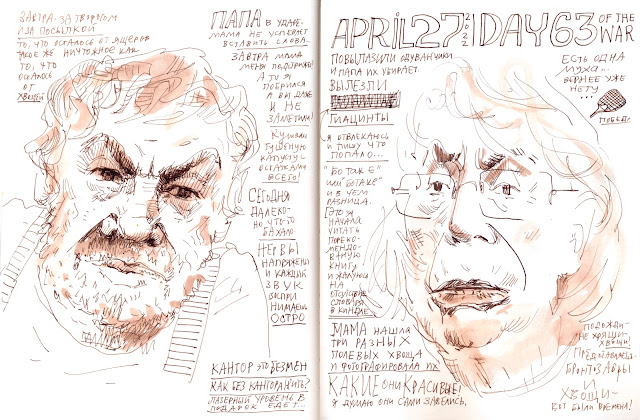 ЗАВТРА: ЗА ТВОРОГОМ
И ЗА ПОСЫЛКОЙ
ТО, ЧТО ОСТАЛОСЬ ОТ ЯЩЕРОВ
ТАКОЕ ЖЕ НИЧТОЖНОЕ КАК
ТО, ЧТО
ОСТАЛОСЬ
ОТ
ХВОЩЕЙ
ПАПА В УДАРЕ
МАМА НЕ УСПЕВАЕТ
ВСТАВИТЬ СЛОВА.
ЗАВТРА МАМА
МЕНЯ ПОДСТРИЖЁТ
А ТО Я
ПОБРИЛСЯ
А ВЫ ДАЖЕ
И НЕ
ЗАМЕТИЛИ!
КУШАЛИ
ТУШЁНУЮ
КАПУСТУ С
ОСТАТКАМИ
ВСЕГО!
СЕГОДНЯ
ДАЛЕКО-
НО ЧТО-ТО
БАХАЛО
НЕРВЫ
НАПРЯЖЕНЫ
И КАЖДЫЙ
ЗВУК
ВОСПРИ
НИМАЕШЬ
ОСТРО
КАНТОР ЭТО БЕЗМЕН
КАК БЕЗ КАНТОРА ЖИТЬ?
ЛАЗЕРНЫЙ УРОВЕНЬ В
ПОДАРОК ЕДЕТ...
APRIL 27 2021 DAY 63 OF THE
WAR
ПОВЫЛАЗИЛИ ОДУВАНЧИКИ
И ПАПА ИХ УБИРАЕТ.
ВЫЛЕЗЛИ
ГИАЦИНТЫ
Я ОТВЛЕКАЮСЬ
И ПИШУ ЧТО
ПОПАЛО...
И В ЧЕМ
РАЗНИЦА.
ЭТО Я
НАЧАЛА
ЧИТАТЬ
ПОРЕКО-
МЕНДО-
ВАНУЮ
КНИГУ
И ЖАЛУЮСЬ
НА
ОТСУТСТВИЕ
СЛОВАРЯ
В КИНДЛЕ
МАМА НАШЛА
ТРИ РАЗНЫХ
ПОЛЕВЫХ ХВОЩА
И ФОТОГРАФИРОВАЛА ИХ
КАКИЕ ОНИ КРАСИВЫЕ!
Я ДУМАЮ ОНИ САМИ ЗАВЕЛИСЬ,
ЕСТЬ ОДНА
МУХА...
ВЕРНЕЕ УЖЕ
НЕТУ...
ПОБЕДА!
ПОДОЖДИ-
НЕ ХРЯЩИ-
ХВОЩИ!
ПРЕДСТАВЛЯЕШЬ
БРОНТОЗАВРЫ
И
ХВОЩИ-
ВОТ БЫЛИ ВРЕМЕНА!